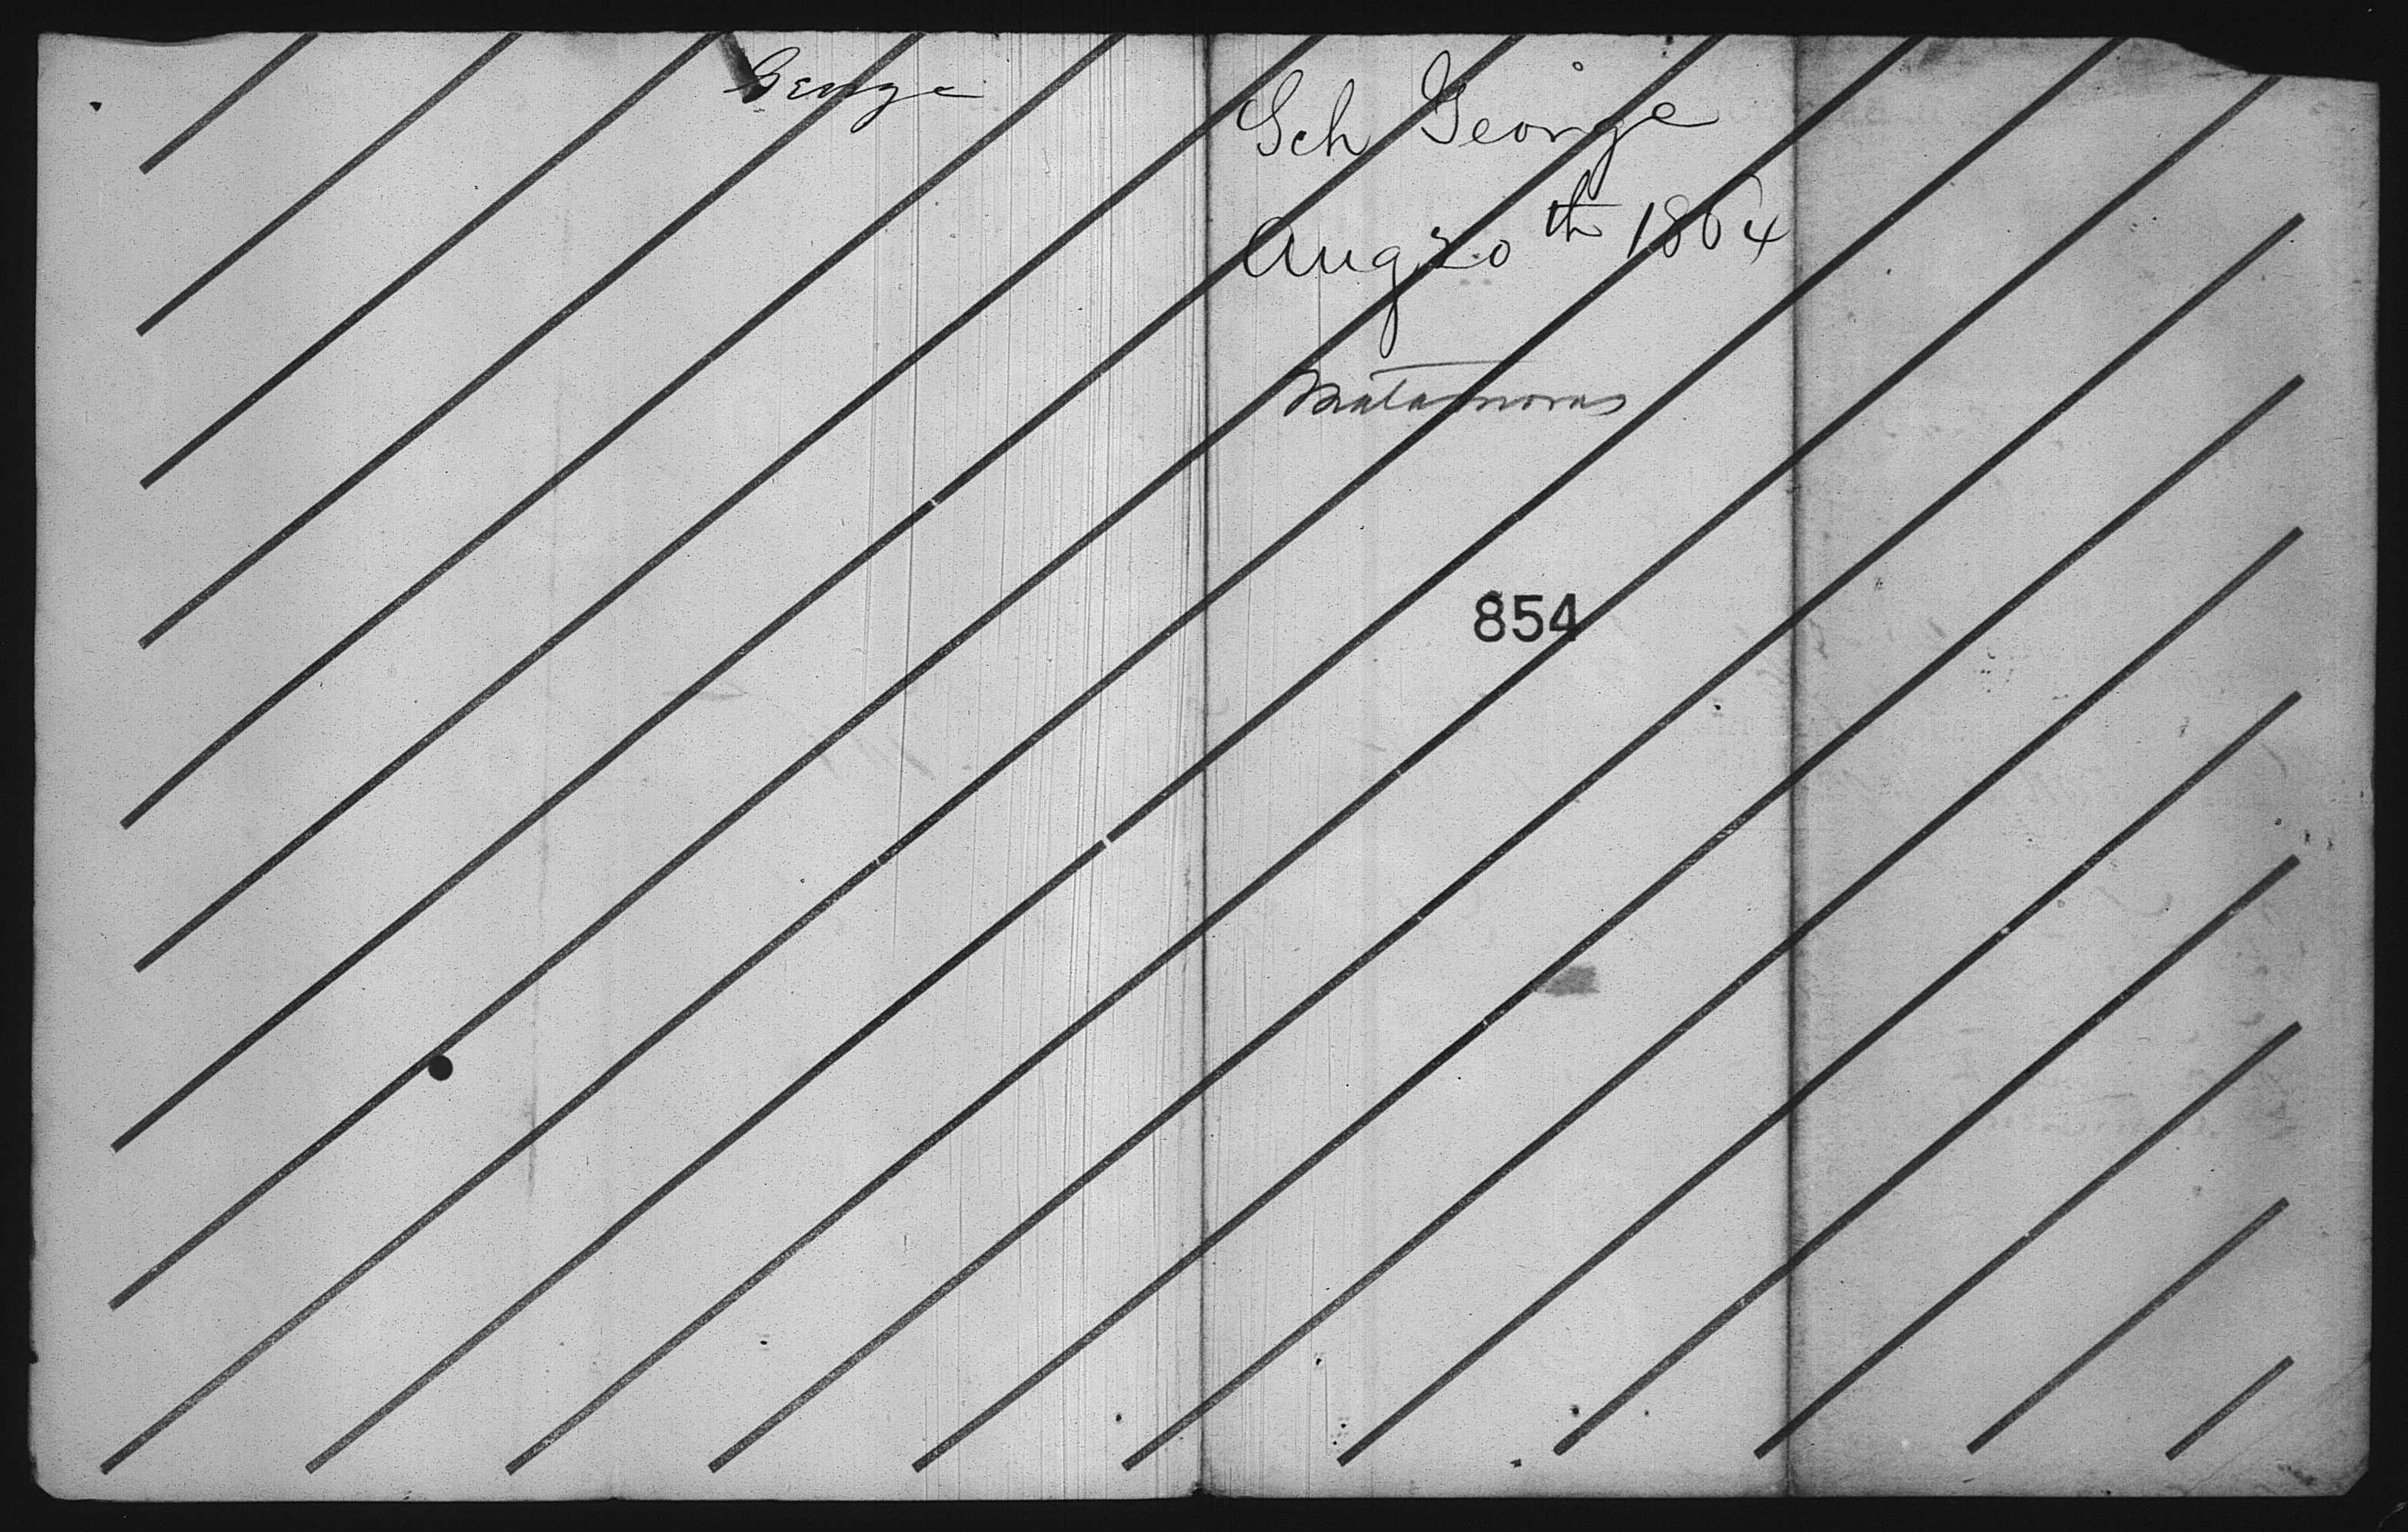 George
Sch George
Aug 20th 1864
Matamoras
854